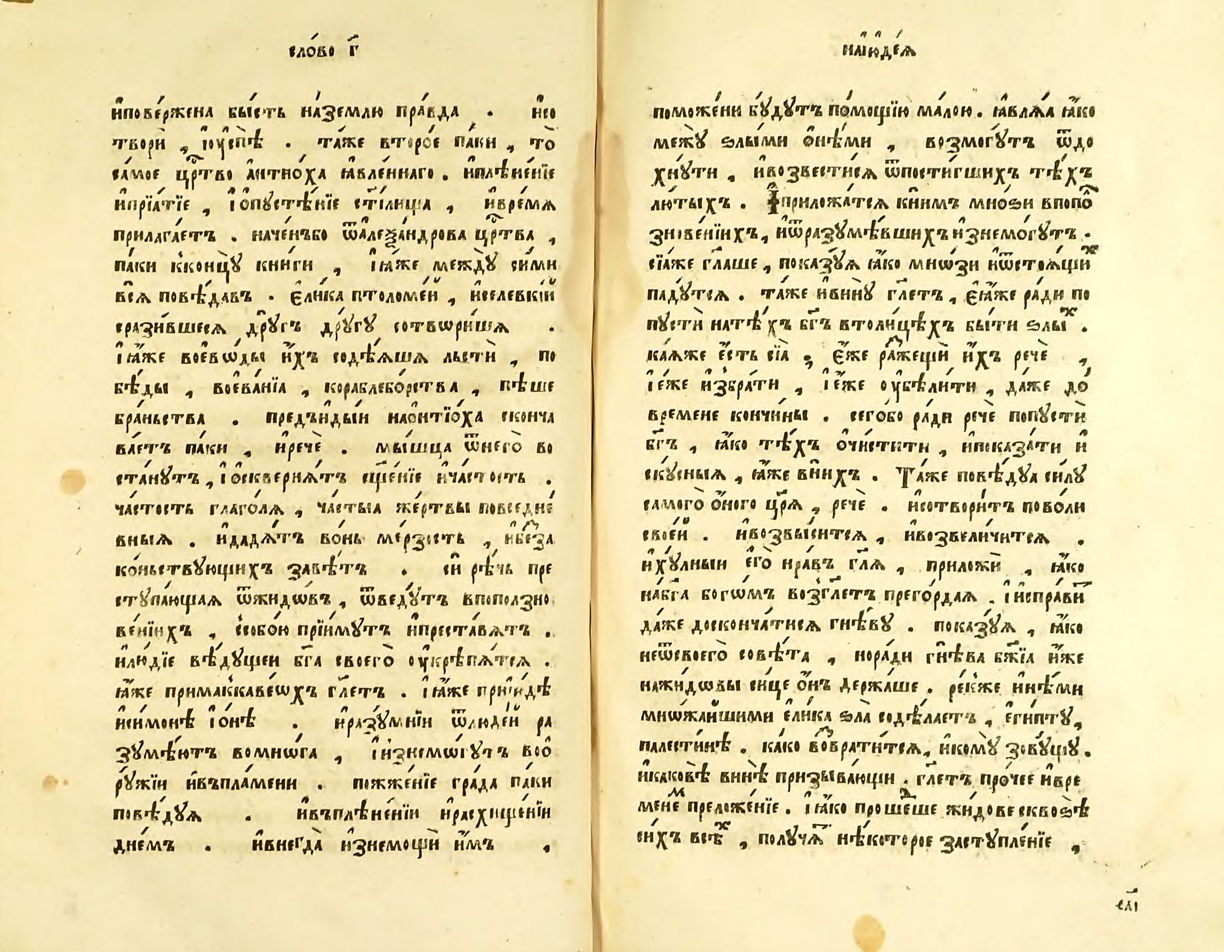 сло́во г҃
и҆пове́ржена бы́сть наꙁе́млю пра́вда . и҆со
твори̇̀ , і҆оу҆спѣ̀ . та́же второ́е па́ки , то̀
самое цр҃тво а҆нтио́ха ꙗ҆вле́ннаго . и҆плѣне́нїе
и҆прїѧ́тїе , і҆опꙋстѣ́нїе ст҃и́лища , и҆вре́мѧ
прилага́етъ . наче́нъбо ѿалеѯа́ндрова цр҃тва ,
па́ки кконцꙋ̀ кни́ги , і҆ꙗ҆́же междꙋ̀ си́ми
всѧ̀ повѣ́давъ . є҆ли́ка птоломе́й , и҆селевкі́й
сраꙁи́вшесѧ дрꙋ́гъ дрꙋ́гꙋ сотвори́шѧ .
і҆ꙗ҆́же воевѡ́ды и҆́хъ содѣ́ѧшѧ льстѝ , по
бѣ́ды , воева́нїа , кораблебо́рства , пѣ́ше
бра́ньства . предъи́дый наа҆нтїо́ха сконча
ва́етъ па́ки , и҆рече̇̀ . мы́шца ѿнего̀ во
ста́нꙋтъ , і҆ѡ҆сквернѧ́тъ сщ҃е́нїе и҆ча́стость .
ча́стость глаго́лѧ , ча́стыа же́ртвы повседне́
вныѧ . и҆дадѧ́тъ во́нь ме́рꙁость , и҆беꙁа
ко́ньствꙋющихъ ꙁавѣ́тъ . сѝ рѣ́чь пре
стꙋпа́ющаѧ ѿжидѡ́въ , ѿведꙋ́тъ впополꙁно
ве́нїихъ , с̾собо́ю прїи́мꙋтъ и҆преста́вѧтъ .
и҆лю́дїе вѣ́дꙋщеи бг҃а своего̀ оу҆крѣпѧ́тсѧ .
ꙗ҆́же примаккаве́ѡхъ гл҃етъ . і҆ꙗ҆́же прии́дѣ
и҆си́монѣ і҆о́нѣ . и҆раꙁꙋмні́и ѿлюде́й ра
ꙁꙋмѣ́ютъ вомнѡ́га , і҆и҆ꙁнемо́гꙋтъ воо҆
рꙋ́жїи и҆въпла́мени . пожже́нїе гра́да па́ки
повѣ́дꙋѧ . и҆въплѣне́нїи и҆расхище́нїи
дне́мъ . и҆внегда̀ и҆ꙁнемощѝ и҆́мъ ,
наїꙋде́ѧ
поможе́ни бꙋ́дꙋтъ по́мощїю ма́лою . ꙗ҆влѧ́ѧ ꙗ҆́ко
межꙋ̀ ѕлы́ми о҆нѣ́ми , воꙁмо́гꙋтъ ѿдо
хнꙋ́ти , и҆воꙁвестисѧ ѿпости́гшихъ тѣ́хъ
лю́тыхъ . І҆приложа́тсѧ кни́мъ мно́ѕи впопо́
ꙁнове́нїихъ , и҆ѿраꙁꙋмѣ́вшихъ и҆ꙁнемо́гꙋтъ .
сїа́же гл҃аше , покаꙁꙋѧ ꙗ҆́ко мно́ꙁи и҆ѿстоѧ́щих
падꙋ́тсѧ . та́же и҆винꙋ̀ гл҃етъ , є҆ѧ҆́же ра́ди по
пꙋстѝ натѣ́хъ бг҃ъ втоли́цѣхъ бы́ти ѕлых .
ка́ѧже є҆́сть сїа̀ ; є҆́же раже́щи и҆́хъ речѐ ,
і҆є҆́же и҆ꙁбра́ти , і҆є҆́же оу҆бѣли́ти , да́же до
вре́мене кончи́ны . сегобо ра́ди речѐ попꙋстѝ
бг҃ъ , ꙗ҆́ко тѣ́хъ ѡ҆чи́стити , и҆покаꙁа́ти и҆
скꙋ́сныѧ , ꙗ҆́же вни́хъ . Та́же повѣ́дꙋа си́лꙋ
самого̀ о҆́ного цр҃ѧ̀ , речѐ . и҆сотвори́тъ пово́ли
свое́й . и҆воꙁвы́ситсѧ , и҆воꙁвели́читсѧ .
и҆хꙋ́лныи є҆го̀ нра́въ гл҃ѧ , приложѝ , ꙗ҆́ко
набг҃а бого́мъ воꙁгл҃етъ прего́рдаѧ . і҆и҆спра́ви
да́же досконча́тисѧ гнѣ́вꙋ . покаꙁꙋѧ , ꙗ҆́ко
неѿсвоего̀ совѣ́та , нора́ди гнѣ́ва бж҃їа и҆́же
нажидѡ́вы си́це о҆́нъ держа́ше . ре́кже и҆нѣ́ми
мнѡжа́йшими є҆ли́ка ѕла̀ содѣ́лаетъ , є҆гѵ́птꙋ ,
палести́нѣ . ка́ко воꙁврати́тсѧ , и҆комꙋ̀ ꙁовꙋ́щꙋ .
и҆како́вѣ винѣ̀ приꙁыва́ющи . гл҃етъ про́чее и҆вре
менем преложе́нїе . і҆ꙗ҆́ко проше́дше жи́дове сквоѕѣ̀
си́хъ всѣх , полꙋчат нѣ́которое ꙁастꙋпле́нїе ,
аі҃